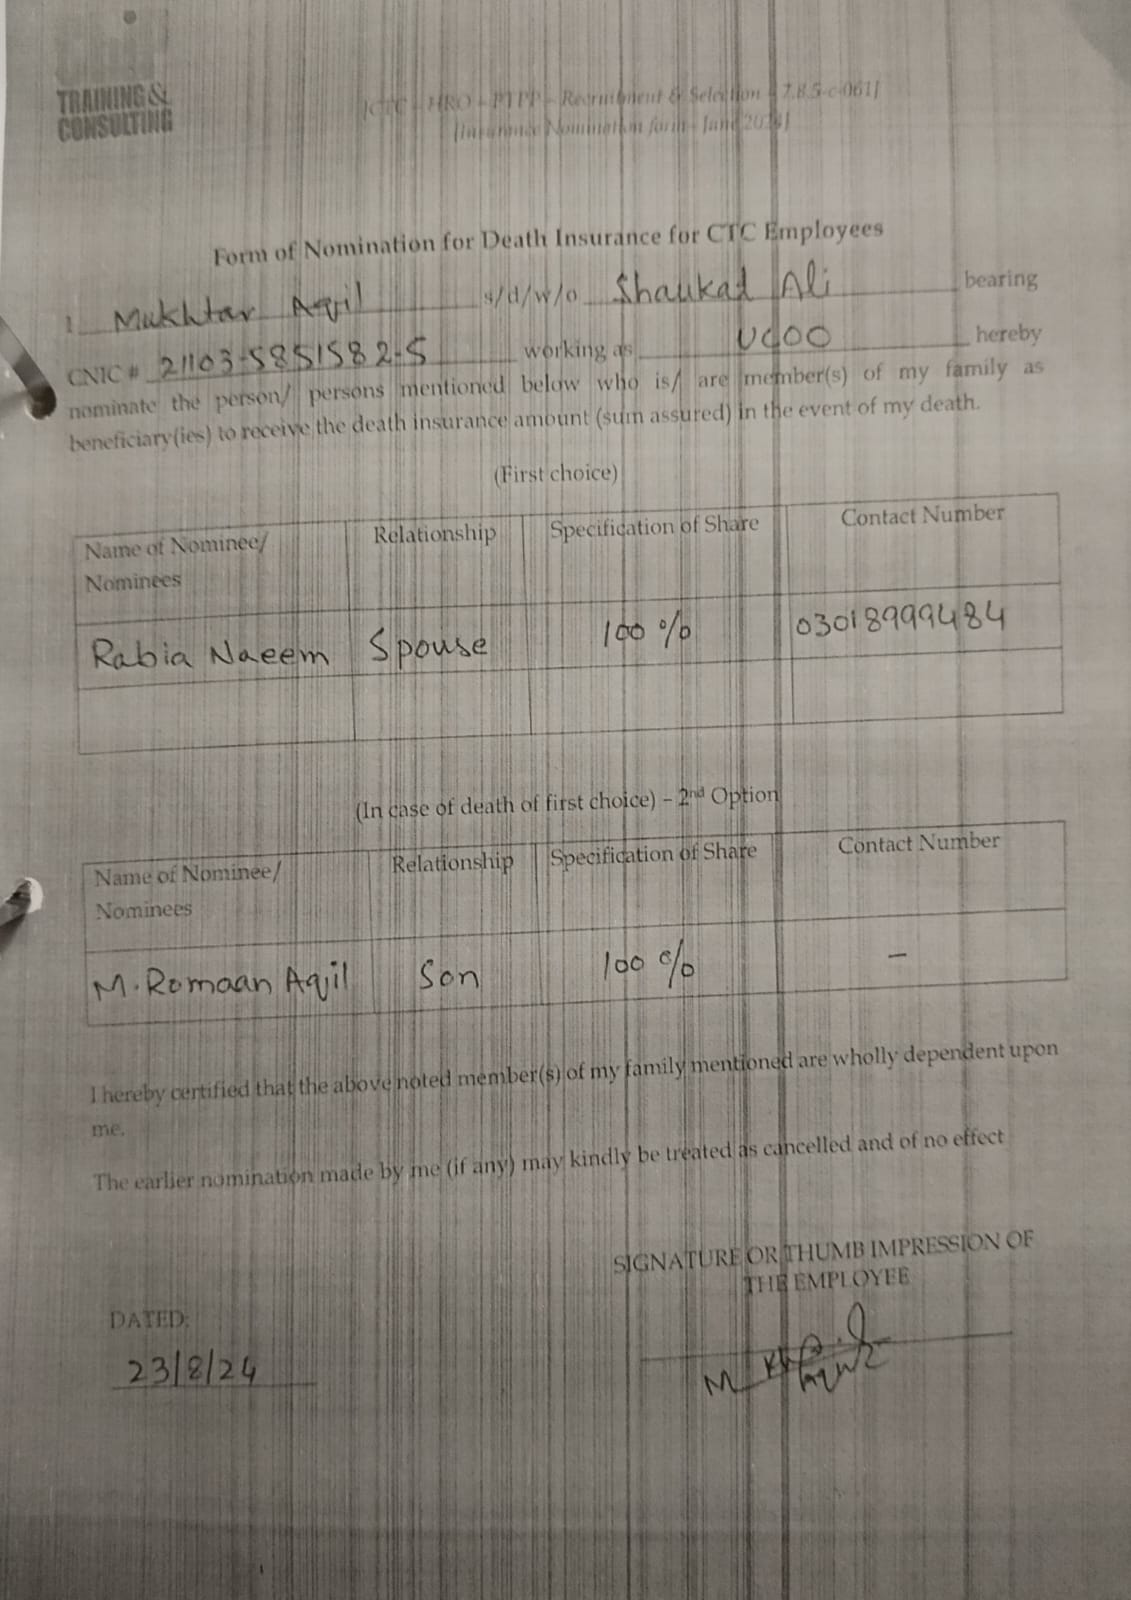 TRAINING &
CONSULTING
[CTC – HRO – PTPP – Recruitment & Selection – 7.8.5-c-061]
[Insurance Nomination form – June 2024]
Form of Nomination for Death Insurance for CTC Employees
I Mukhtar Aqil s/d/w/o Shaukad Ali bearing
CNIC # 21103-5851582-5 working as UCOO hereby
nominate the person/ persons mentioned below who is/ are member(s) of my family as
beneficiary(ies) to receive the death insurance amount (sum assured) in the event of my death.
(First choice)
Name of Nominee/ Relationship Specification of Share Contact Number
Nominees
Rabia Naeem Spouse 100 % 03018999484
(In case of death of first choice) – 2nd Option
Name of Nominee/ Relationship Specification of Share Contact Number
Nominees
M. Romaan Aqil Son 100 % –
I hereby certified that the above noted member(s) of my family mentioned are wholly dependent upon
me.
The earlier nomination made by me (if any) may kindly be treated as cancelled and of no effect
SIGNATURE OR THUMB IMPRESSION OF
THE EMPLOYEE
DATED:
23/8/24